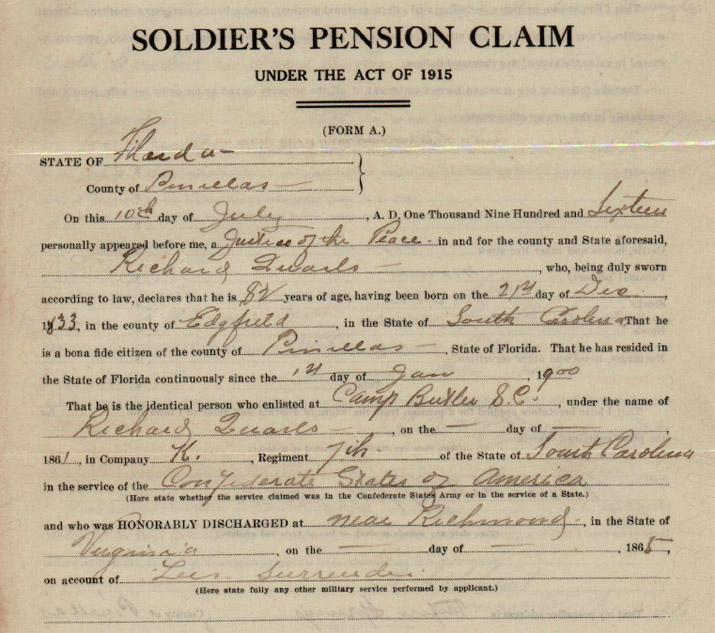 SOLDIER'S PENSION CLAIM
UNDER THE ACT OF 1915
(FORM A.)
STATE OF Florida
County of Pinellas
On this 10th day of July, A. D. One Thousand Nine Hundred and Sixteen
personally appeared before me, a Justice of the Peace in and for the county and State aforesaid,
Richard Quarls, who, being duly sworn
according to law, declares that he is 82 years of age, having been born on the 21st day of Dec.
1833, in the county of Edgfield, in the State of South Carolina That he
is a bona fide citizen of the county of Pinellas, State of Florida. That he has resided in
the State of Florida continuously since the 1st day of Jan 1900
That he is the identical person who enlisted at Camp Butler S.C., under the name of
Richard Quarls, on the — day of —,
1861, in Company K., Regiment 7th of the State of South Carolina
in the service of the Confederate States of America
(Here state whether the service claimed was in the Confederate States Army or in the service of a State.)
and who was HONORABLY DISCHARGED at near Richmond, in the State of
Virginia, on the — day of —, 1865,
on account of Lees Surrender.
(Here state fully any other military service performed by applicant.)